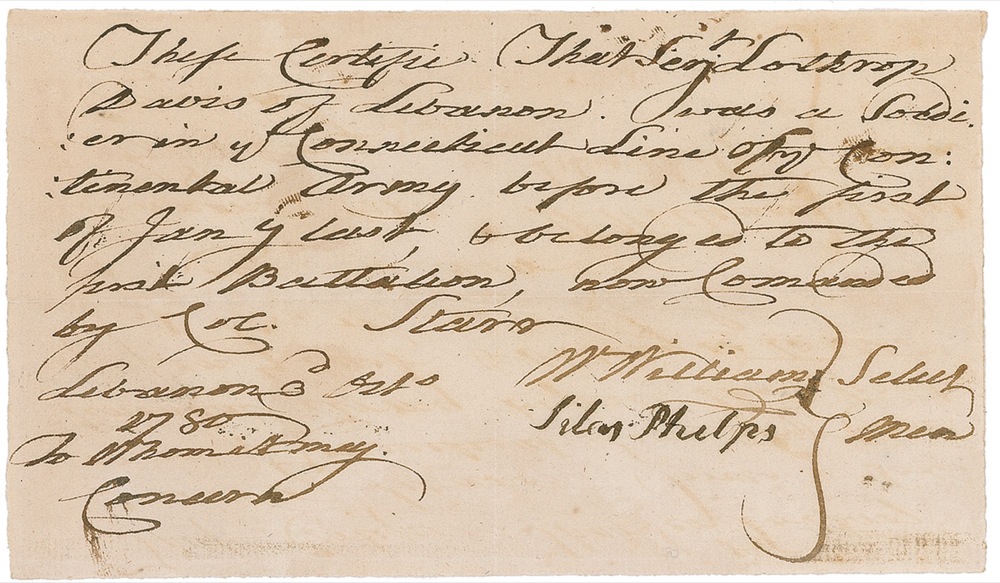 These Certifie That Serjt Lothrop
Davis of Lebanon. was a Soldi:
:er in ye Connecticut Line of ye Con:
:tinental Army before the first
of Jany last, & belonged to the
first Battalion, now Comanded
by Col. Starr
Lebanon 3d Octo
1780
To Whom it may
Concern
Wm Williams
Silas Phelps
Select
Men